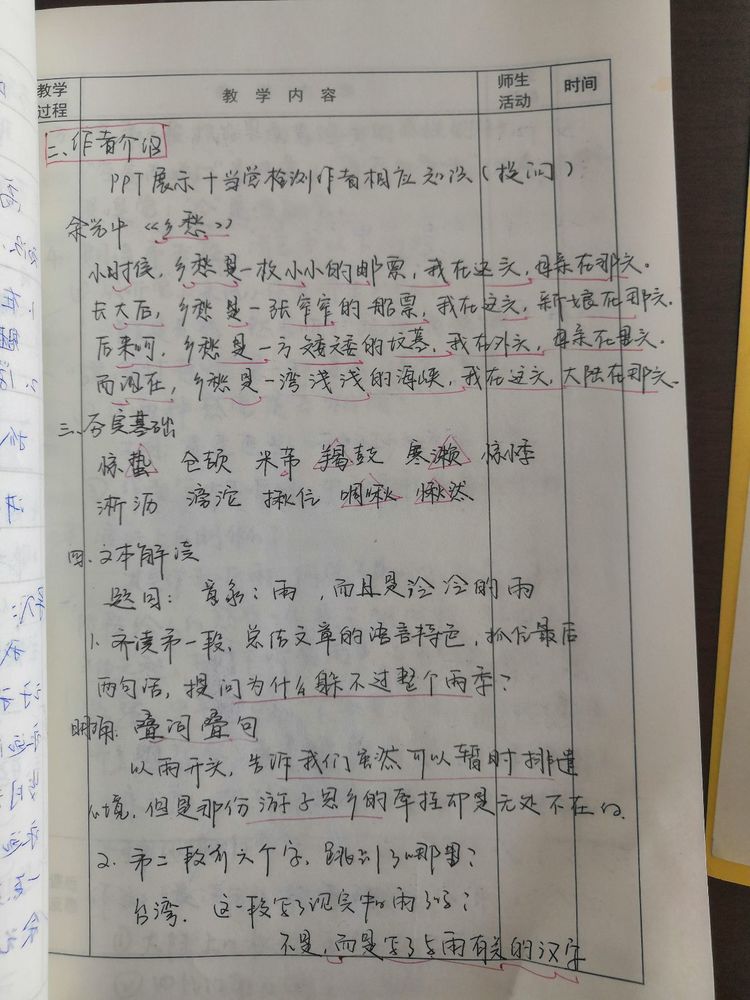 教学过程 教学内容 师生活动 时间
二、作者介绍
PPT展示+当堂检测作者相应知识(提问)
余光中《乡愁》
小时候,乡愁是一枚小小的邮票,我在这头,母亲在那头。
长大后,乡愁是一张窄窄的船票,我在这头,新娘在那头。
后来啊,乡愁是一方矮矮的坟墓,我在外头,母亲在里头。
而现在,乡愁是一湾浅浅的海峡,我在这头,大陆在那头。
三、夯实基础
惊蛰 仓颉 米芾 羯鼓 寒濑 惊悸
淅沥 滂沱 揪住 啁啾 愀然
四、文本解读
题目:意象:雨,而且是冷冷的雨
1. 齐读第一段,总结文章的语言特色,抓住最后
两句话,提问为什么躲不过整个雨季?
明确:叠词叠句
以雨开头,告诉我们虽然可以暂时排遣
心境,但是那份游子思乡的牵挂却是无处不在的.
2. 第二段前六个字,跳到了哪里?
台湾. 这一段写了现实中的雨了吗?
不是,而是写了与雨有关的汉字